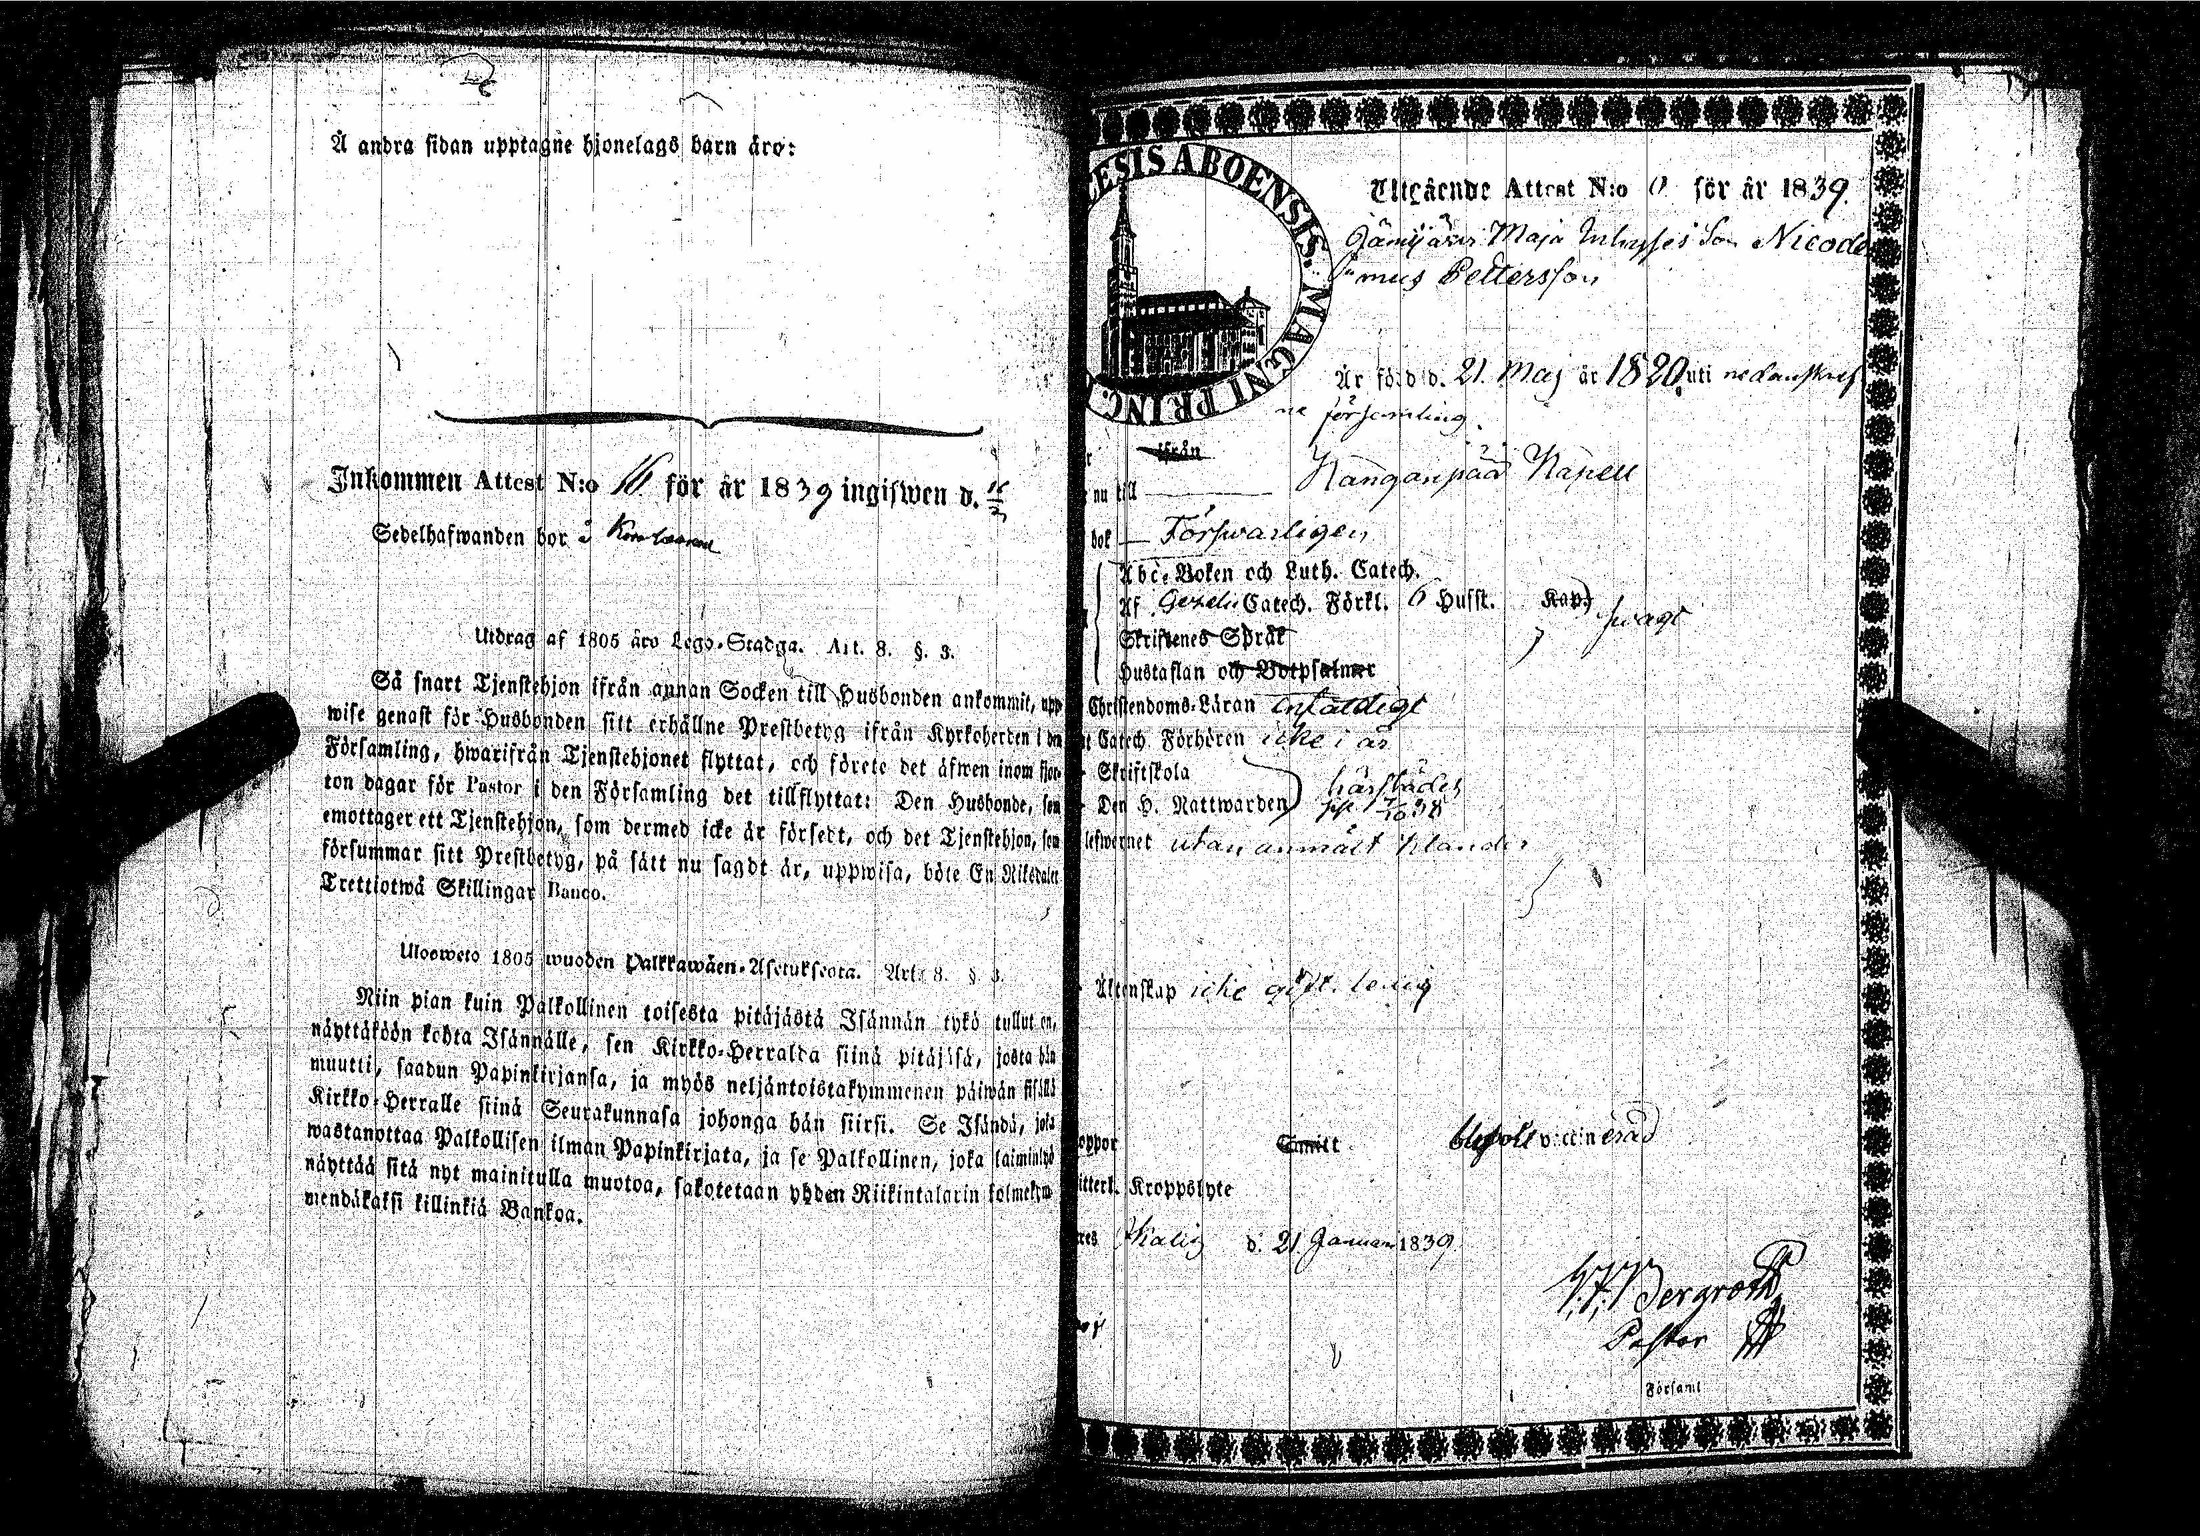 Å andra sidan upptagne hjonelags barn äro:
Inkommen Attest N:o 16. för år 1839 ingifwen d.
Sedelhafwanden bor å
Utdrag af 1805 års Lego-Stadga. Art. 8. §. 3.
Så snart Tjenstehjon ifrån annan Socken till Husbonden ankommit, upp
wise genast för Husbonden sitt erhållne Prestbetyg ifrån Kyrkoherden i den
Församling, hwarifrån Tjenstehjonet flyttat, och förete det äfwen inom fjor-
ton dagar för Pastor i den Församling det tillflyttat: Den Husbonde, som
emottager ett Tjenstehjon, som dermed icke är försedt, och det Tjenstehjon, som
försummar sitt Prestbetyg, på sätt nu sagdt är, uppwisa, böte En Riksdaler
Trettiotwå Skillingar Banco.
Ulosweto 1805 wuoden Palkkawäen-Asetuksesta. Art. 8. §. 3.
Niin pian kuin Palkollinen toisesta pitäjästä Isännän tykö tullut on,
näyttäköön kohta Isännälle, sen Kirkko-Herralda siinä pitäjäsä, josta hän
muutti, saadun Papinkirjansa, ja myös neljäntoistakymmenen päiwän sisällä
Kirkko-Herralle siinä Seurakunnasa johonga hän siirsi. Se Isändä, joka
wastanottaa Palkollisen ilman Papinkirjata, ja se Palkollinen, joka laiminlyö
näyttää sitä nyt mainitulla muotoa, sakotetaan yhden Riikintalarin kolmekym
mendäkaksi killinkiä Bankoa.
CESIS ABOENSIS. MAGNI PRINC.
Utgående Attest N:o för år 1839.
Maja Inhyses Son Nicode
mus Pettersson
Är född d. 21. Maj år 1820 uti nedanskref
ne församling.
ifrån
nu till Kangånpää Kapell
bok Förswarligen
Abc-Boken och Luth. Catech.
Af Gezelii Catech. Förkl. 6 Hufst. Kap. swagt
Skriftenes Språk
Hustaflan och Botpsalmer
Christendoms-Läran enfaldigt
Catech. Förhören icke i år
Skriftskola härstädes
Den H. Nattwarden 7/10 38
lefwernet utan anmält klander
Äktenskap icke gift. ledig
oppor Smitt vaccinerad
itterl. Kroppslyte
res d. 21 Januari 1839.
Bergroth
Pastor
Församl